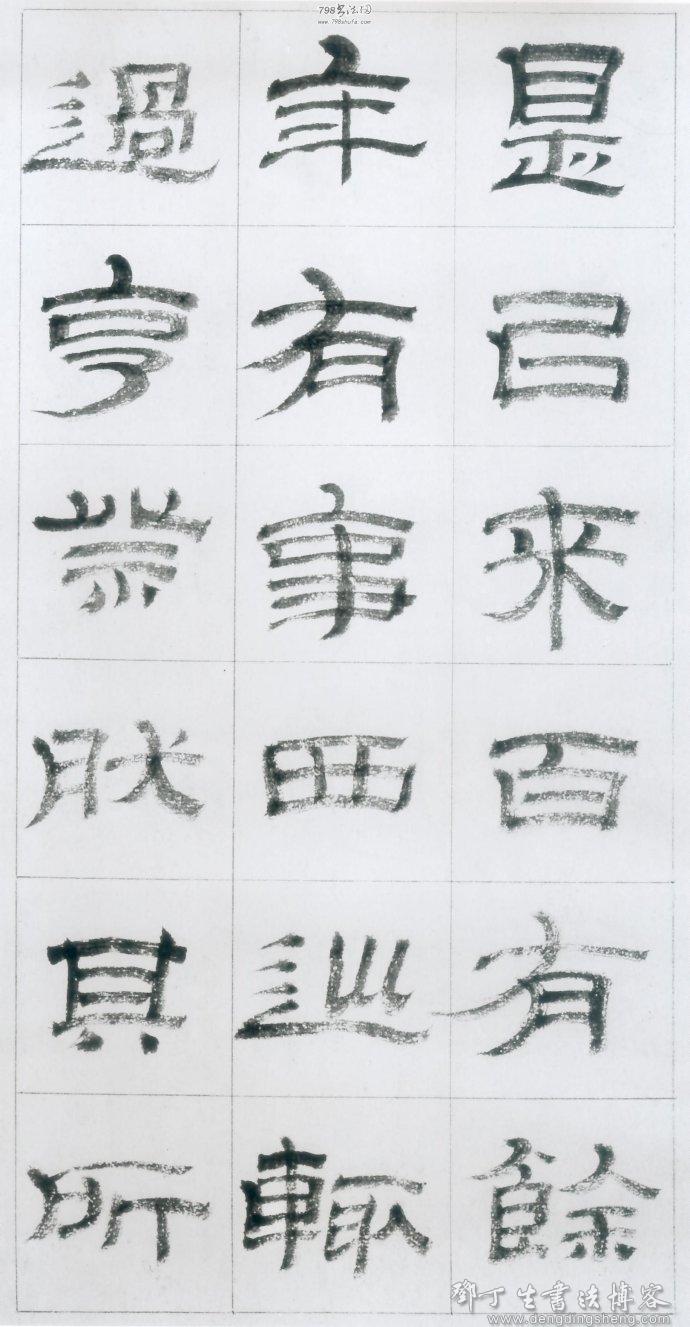 798书法网
www.798shufa.com
是已来百有餘
年有事西巡輒
過亨祭然其所
鄧丁生书法博客
www.dengdingsheng.com